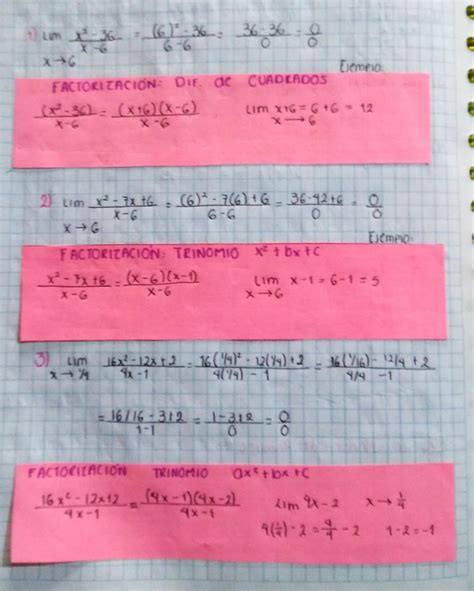 1) Lim x²-36 / x-6 = (6)²-36 / 6-6 = 36-36 / 0 = 0/0
x→6
Ejemplo
FACTORIZACIÓN: DIF. de CUADRADOS
(x²-36) / x-6 = (x+6)(x-6) / x-6   Lim x+6 = 6+6 = 12
x→6
2) Lim x²-7x+6 / x-6 = (6)²-7(6)+6 / 6-6 = 36-42+6 / 0 = 0/0
x→6
Ejemplo:
FACTORIZACIÓN: TRINOMIO x²+bx+c
x²-7x+6 / x-6 = (x-6)(x-1) / x-6   Lim x-1 = 6-1 = 5
x→6
3) Lim 16x²-12x+2 / 4x-1 = 16(1/4)²-12(1/4)+2 / 4(1/4)-1 = 16(1/16)-12/4+2 / 4/4-1
x→1/4
= 16/16-3+2 / 1-1 = 1-3+2 / 0 = 0/0
FACTORIZACIÓN TRINOMIO ax²+bx+c
16x²-12x+2 / 4x-1 = (4x-1)(4x-2) / 4x-1   Lim 4x-2   x→1/4
4(1/4)-2 = 4/4-2   1-2=-1